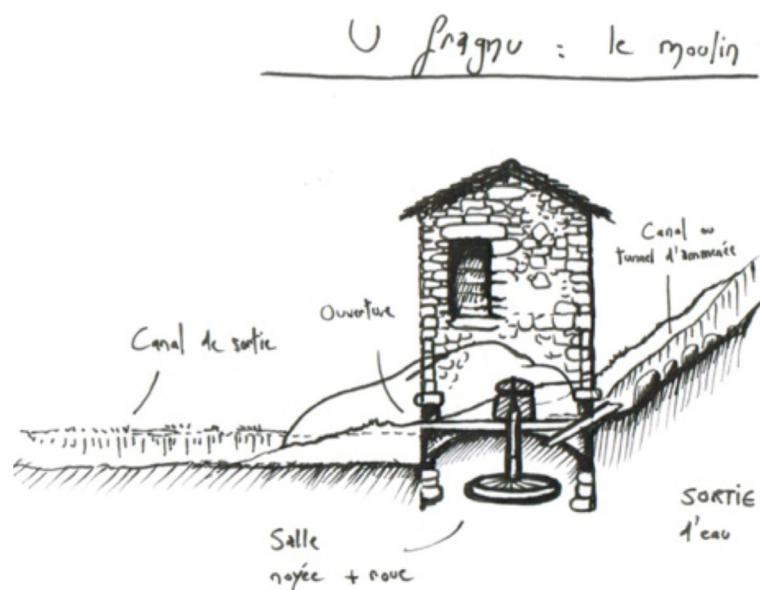 U fragnu : le moulin
Canal ou
tunnel d'ammenée
Ouverture
Canal de sortie
SORTIE
d'eau
Salle
noyée + roue